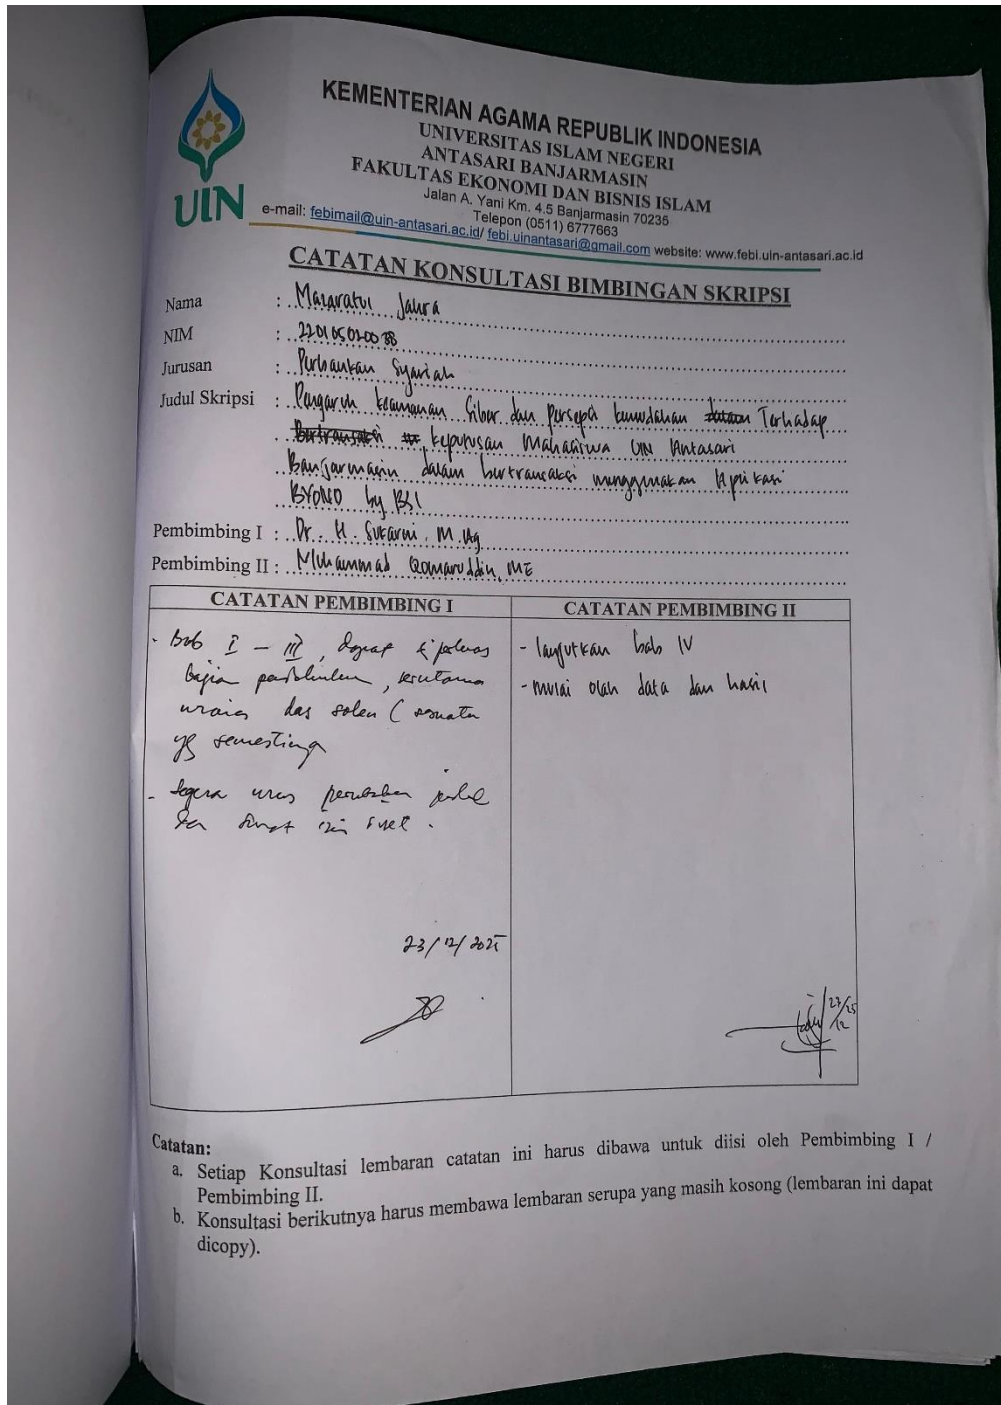 UIN
KEMENTERIAN AGAMA REPUBLIK INDONESIA
UNIVERSITAS ISLAM NEGERI
ANTASARI BANJARMASIN
FAKULTAS EKONOMI DAN BISNIS ISLAM
Jalan A. Yani Km. 4.5 Banjarmasin 70235
Telepon (0511) 6777663
e-mail: febimail@uin-antasari.ac.id/ febi.uinantasari@gmail.com website: www.febi.uin-antasari.ac.id
CATATAN KONSULTASI BIMBINGAN SKRIPSI
Nama : Mazaratul Jahra
NIM : 220105020038
Jurusan : Perbankan Syariah
Judul Skripsi : Pengaruh keamanan Siber dan persepsi kemudahan Terhadap
Bertransaksi keputusan Mahasiswa UIN Antasari
Banjarmasin dalam bertransaksi menggunakan Aplikasi
BYOND by BSI
Pembimbing I : Dr. H. Sukarni, M.Ag
Pembimbing II : Muhammad Qomaruddin, ME
CATATAN PEMBIMBING I
- Bab I - III, dapat diperluas
bagian pendahuluan, terutama
uraian das solen (sesuatu
yg semestinya
- Segera urus perubahan judul
dan surat izin riset.
23/12/2025
CATATAN PEMBIMBING II
- lanjutkan bab IV
- mulai olah data dan hasil
27/25
12
Catatan:
a. Setiap Konsultasi lembaran catatan ini harus dibawa untuk diisi oleh Pembimbing I /
Pembimbing II.
b. Konsultasi berikutnya harus membawa lembaran serupa yang masih kosong (lembaran ini dapat
dicopy).